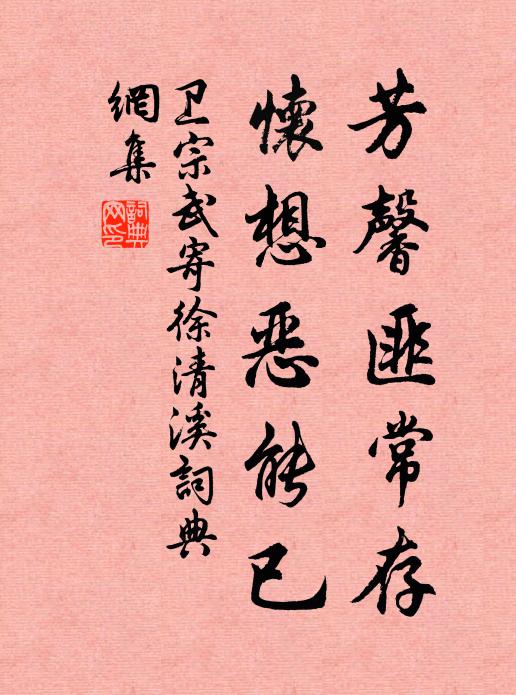 芳馨匪常存
懷想恶能已
卫宗武寄徐清溪詞典
網集
詞典
网印